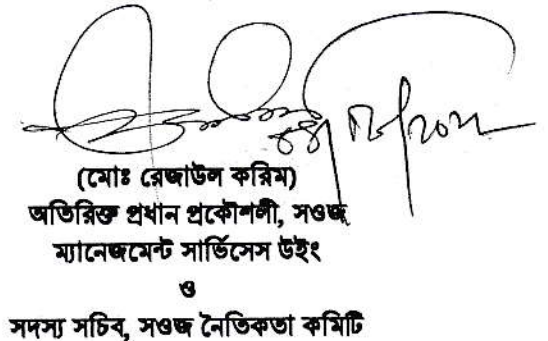 (মোঃ রেজাউল করিম)
অতিরিক্ত প্রধান প্রকৌশলী, সওজ
ম্যানেজমেন্ট সার্ভিসেস উইং
ও
সদস্য সচিব, সওজ নৈতিকতা কমিটি